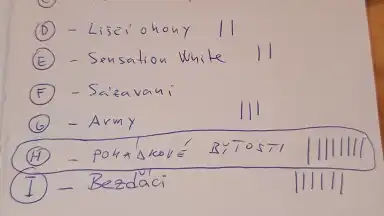 D - Liščí ohony ||
E - Sensation White ||
F - Sázavani
G - Army |||
H - POHÁDKOVÉ BYTOSTI ||||||||
I - Bezďáci ||||||